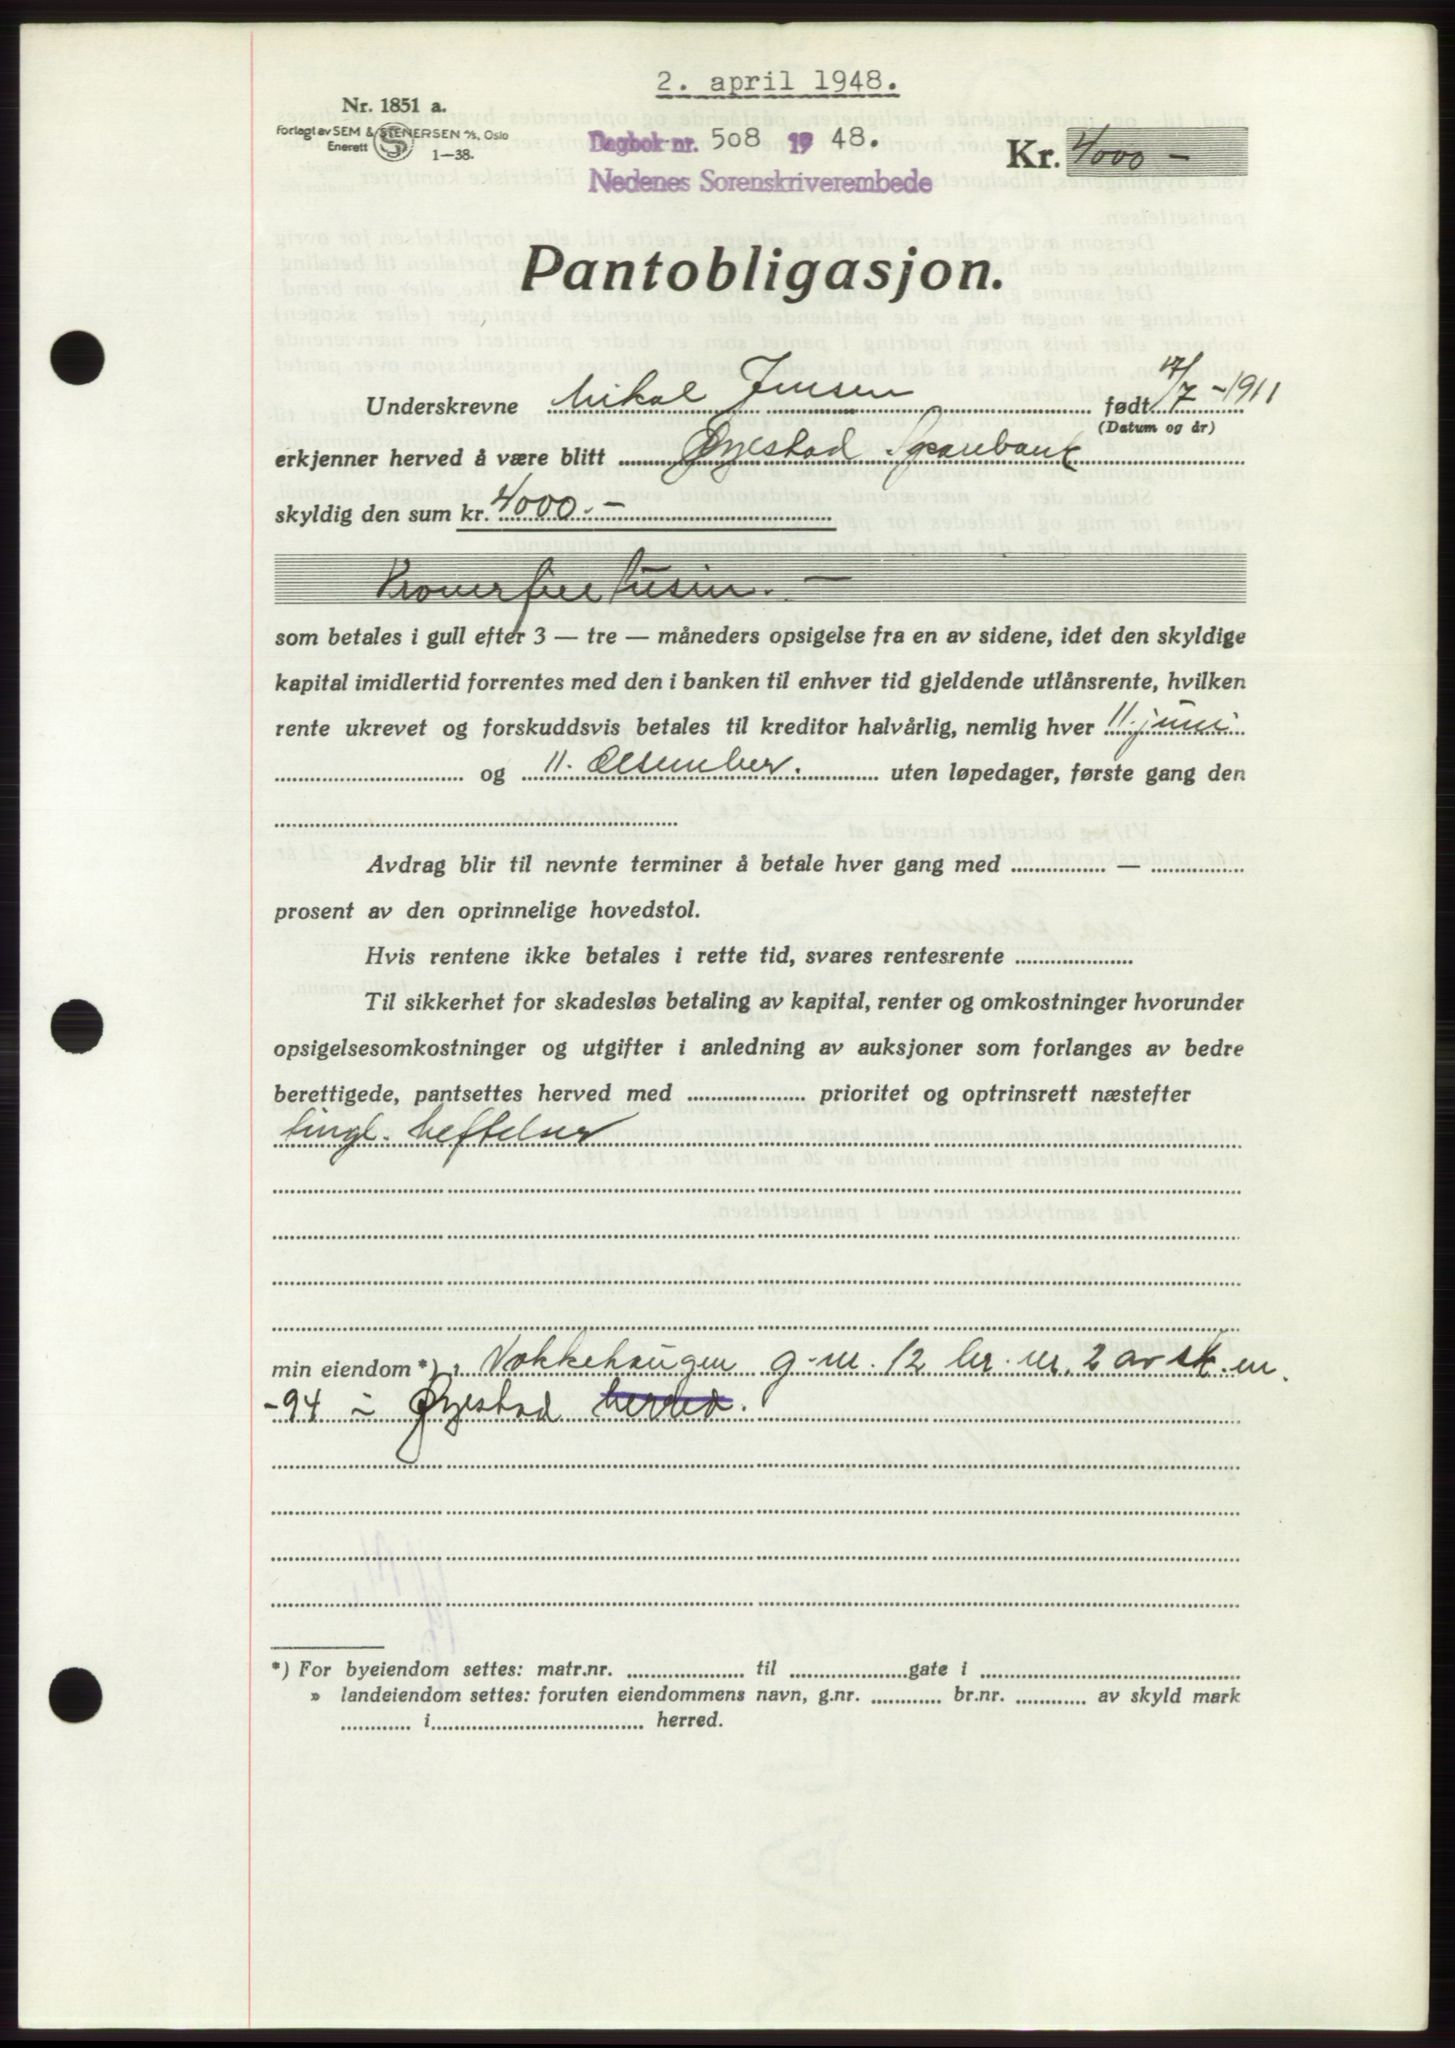 2. april 1948.
Nr. 1851 a.
Forlagt av SEM & STENERSEN A/S, Oslo
Enerett
1-38.
Dagbok nr. 508 19 48.
Kr. 4000 —
Nedenes Sorenskriverembede
Pantobligasjon.
Underskrevne Mikal Jensen født /7 - 1911
(Datum og år)
erkjenner herved å være blitt Øyestad Sparebank
skyldig den sum kr. 4000.-
Kroner fire tusin. —
som betales i gull efter 3 — tre — måneders opsigelse fra en av sidene, idet den skyldige
kapital imidlertid forrentes med den i banken til enhver tid gjeldende utlånsrente, hvilken
rente ukrevet og forskuddsvis betales til kreditor halvårlig, nemlig hver 11. juni
og 11. desember. uten løpedager, første gang den
Avdrag blir til nevnte terminer å betale hver gang med —
prosent av den oprinnelige hovedstol.
Hvis rentene ikke betales i rette tid, svares rentesrente
Til sikkerhet for skadesløs betaling av kapital, renter og omkostninger hvorunder
opsigelsesomkostninger og utgifter i anledning av auksjoner som forlanges av bedre
berettigede, pantsettes herved med prioritet og optrinsrett næstefter
tingl. heftelser
min eiendom *) Vokkehaugen g-nr. 12 br. nr. 2 av sk. m.
-94 i Øyestad herred.
*) For byeiendom settes: matr.nr. til gate i
» landeiendom settes: foruten eiendommens navn, g.nr. br.nr. av skyld mark
i herred.